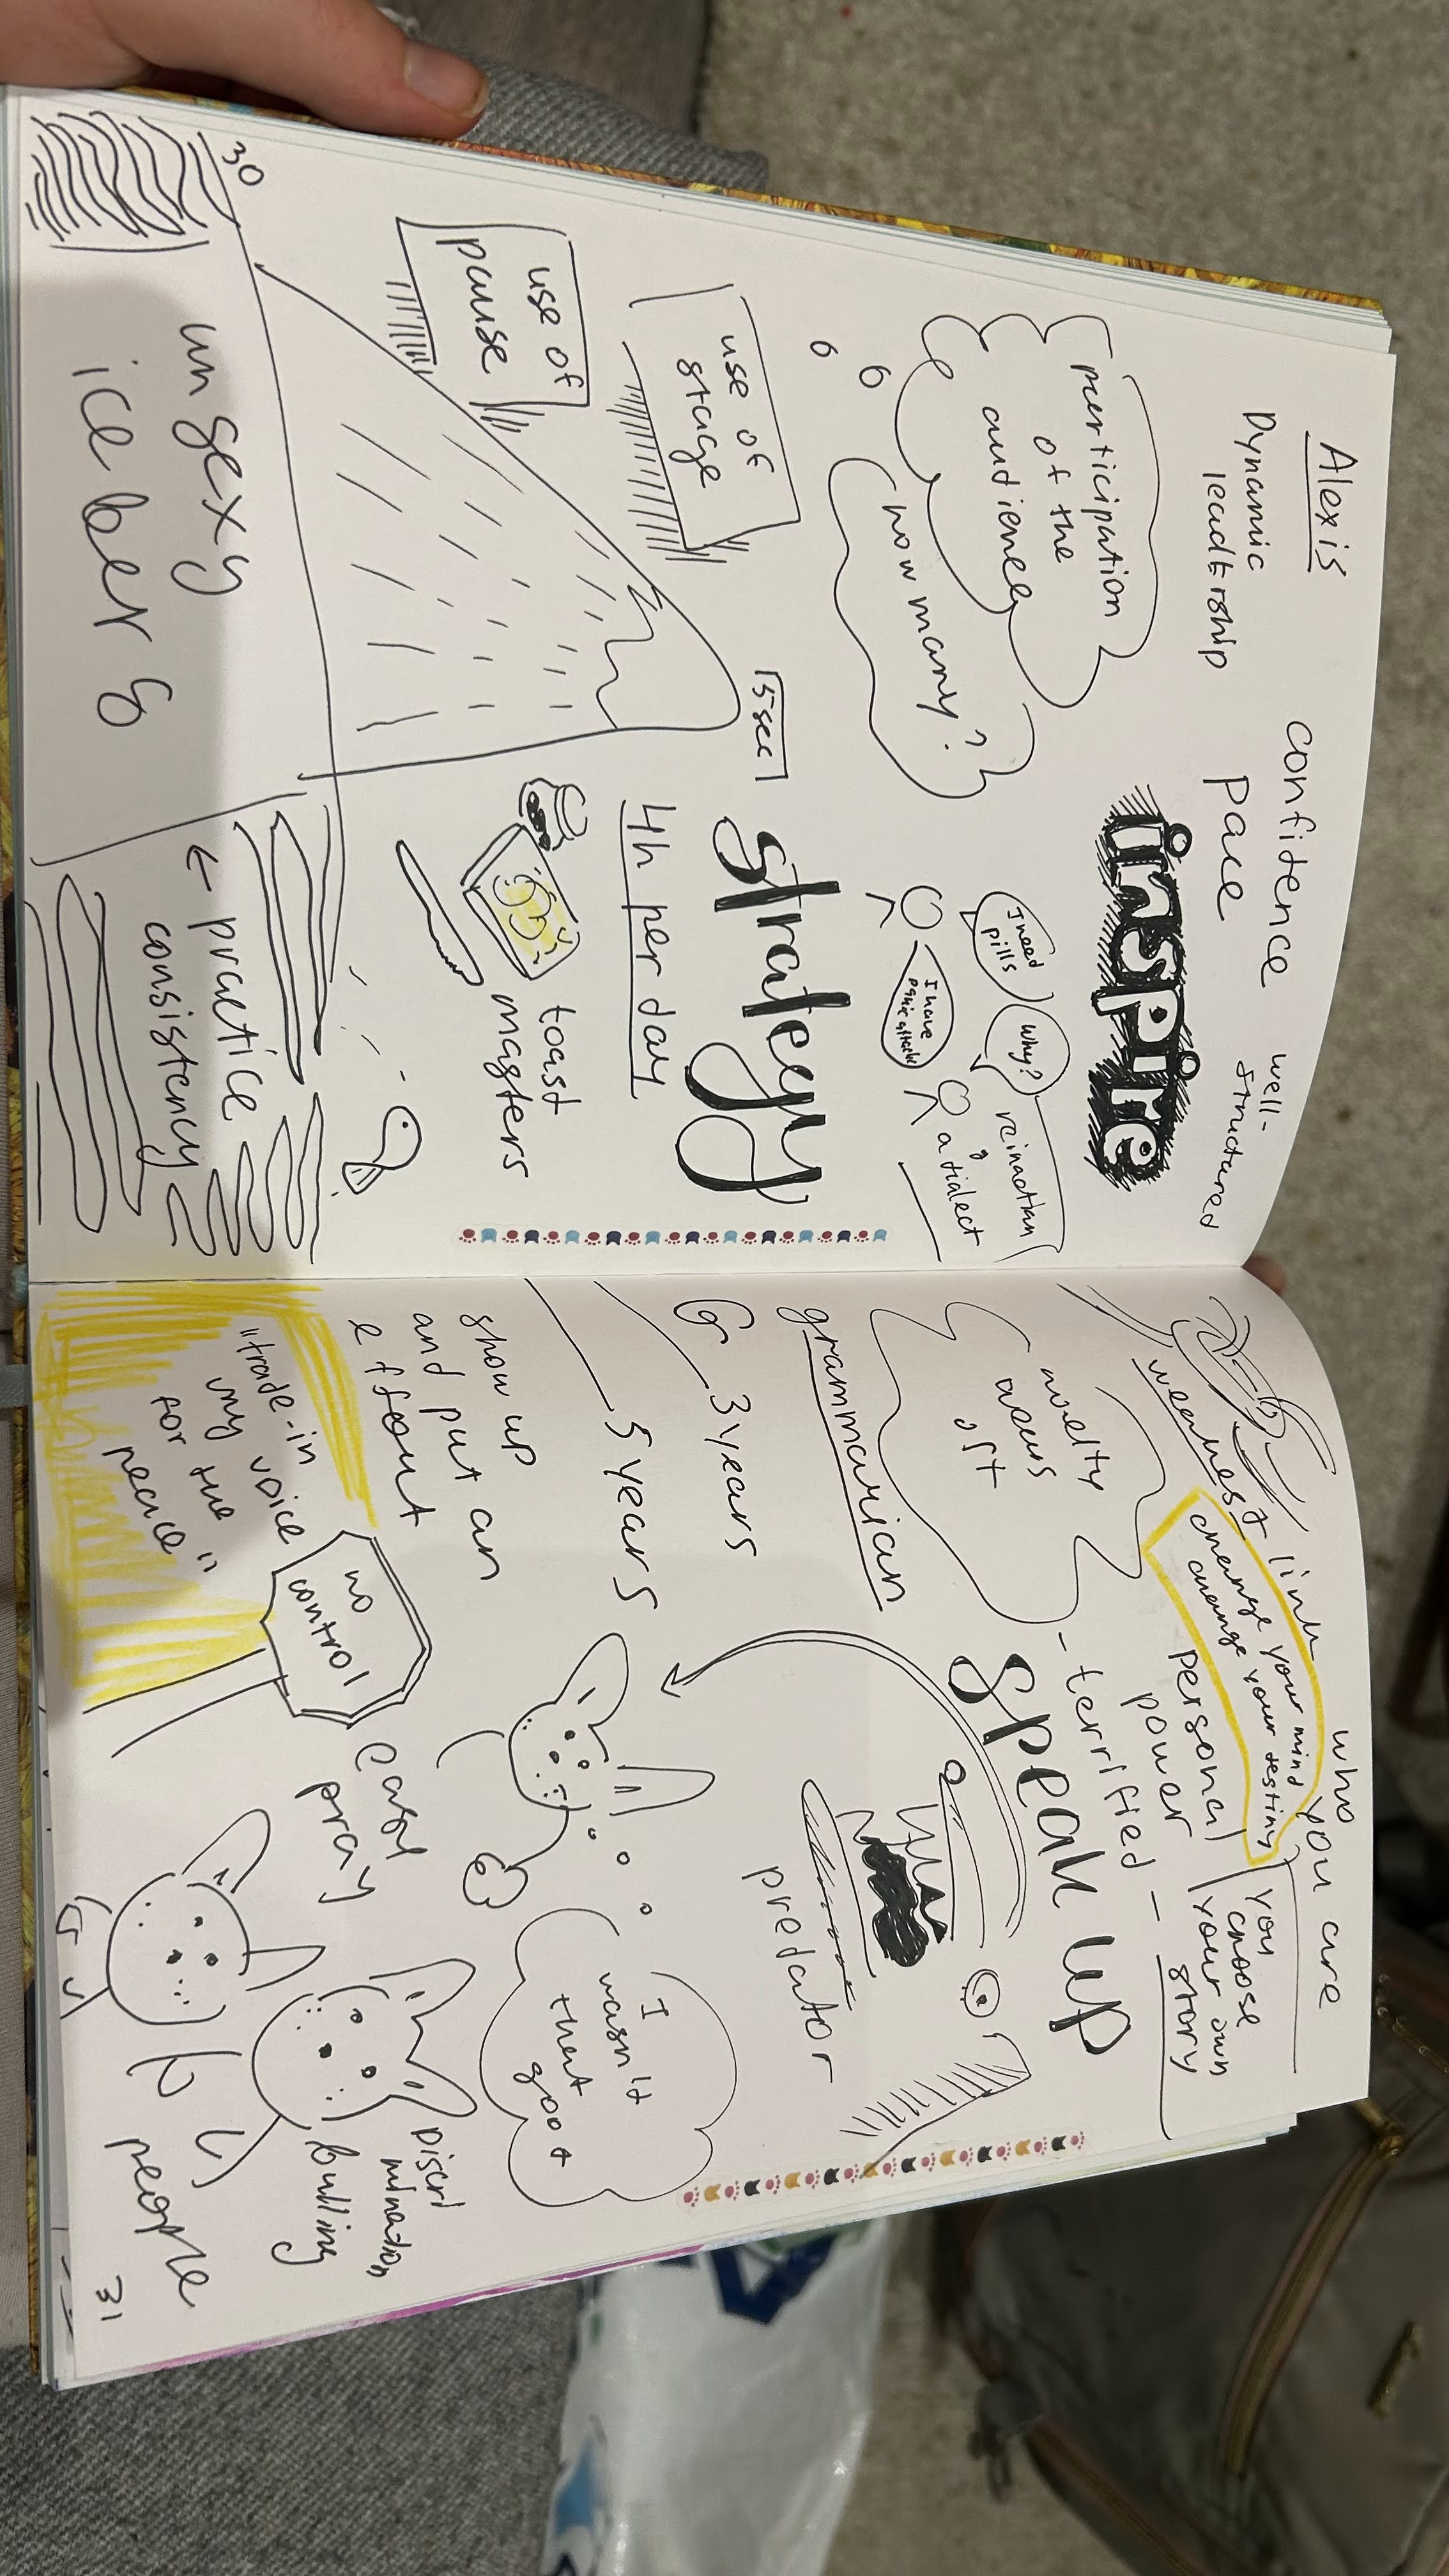 Alexis
Dynamic
leadership
confidence
pace
well-
structured
inspire
participation
of the
audience
how many?
I need
pills
Why?
I have
panic attack
a dialect
use of
stage
use of
pause
15 sec
strategy
4h per day
toast
masters
unsexy
iceberg
← practice
consistency
30
weakest link
who you are
change your mind
change your destiny
personal
power
you
choose
your own
story
- terrified -
speak up
grammarian
3 years
5 years
predator
show up
and put an
effout
I
wasn't
that
good
"trade-in
my voice
for the
peace"
no
control
easy
pray
Discri
mination
bulling
people
31